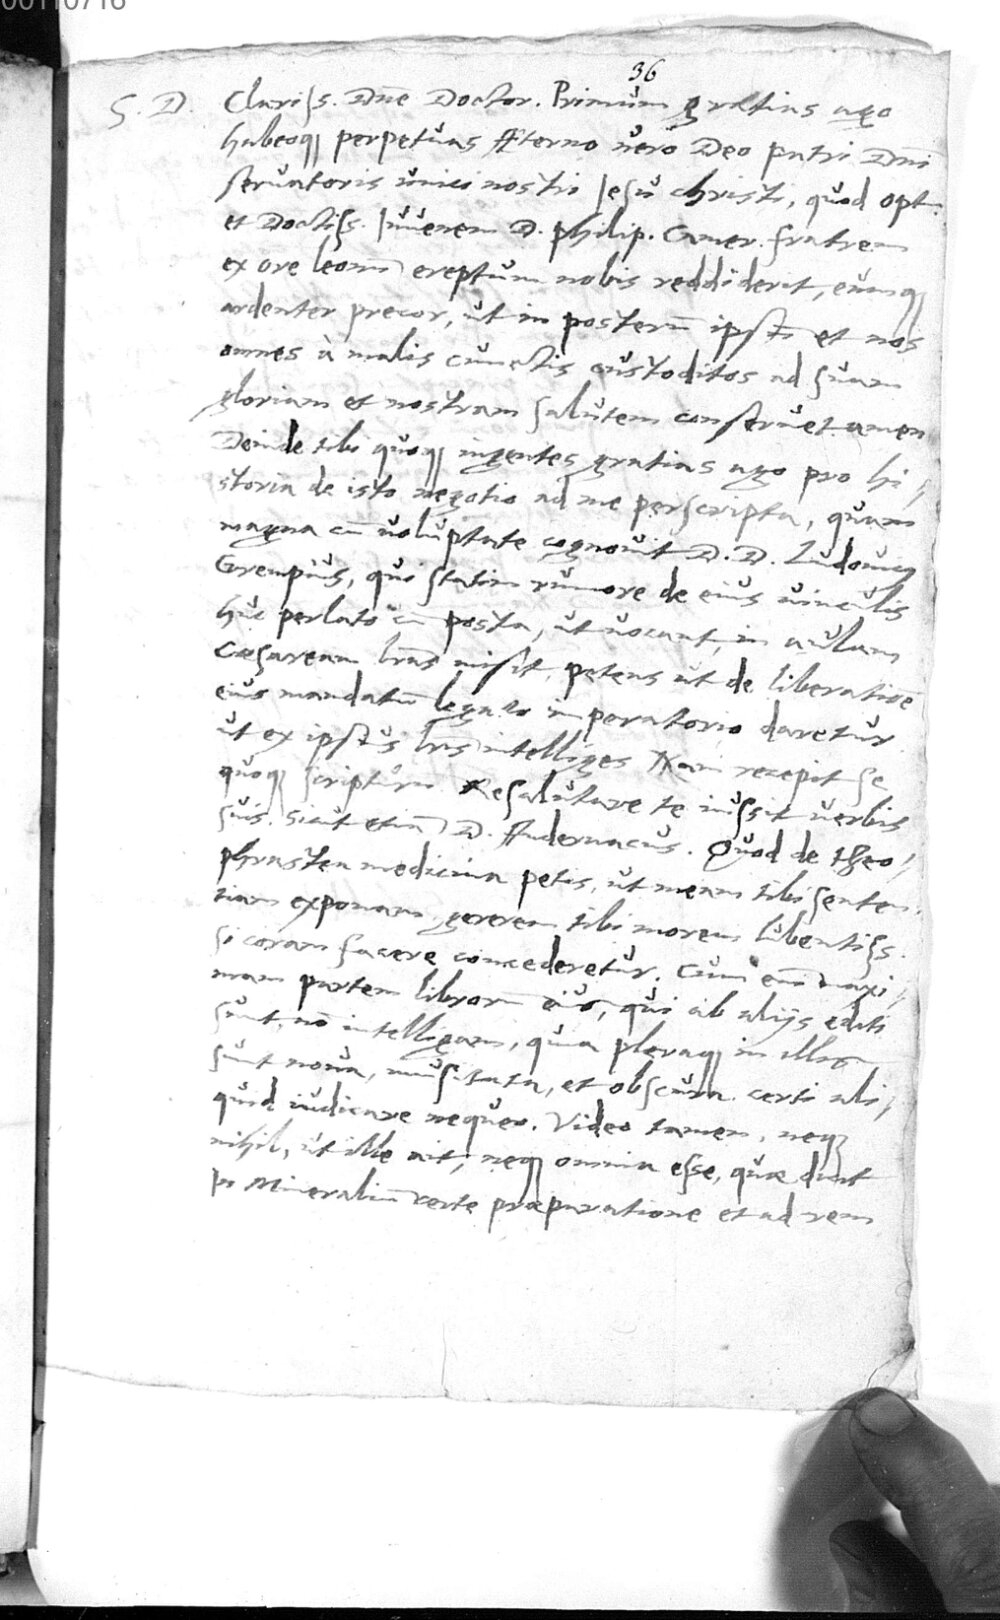 00110716
36
S. D. Clariss. Dne Doctor. Primum gratias ago
habeoq perpetuas Aeterno vero Deo patri Dni
servatoris unici nostri Jesu christi, quod opt.
et Doctiss. Juvenem D. philip. Camer. fratrem
ex ore leonū ereptum nobis reddiderit, eumq
ardenter precor, ut in posterū ipsū et nos
omnes à malis cunctis custoditos ad suam
gloriam et nostram salutem conservet. amen
Deinde tibi quoq ingentes gratias ago pro hi,
storia de isto negotio ad me perscripta, quam
magna cū voluptate cognovit D. D. Ludovicus
Grempius, qui statim rumore de eius vinculis
huc perlato cū posta, ut vocant, in aulam
Caesaream lras misit, petens ut de liberatioē
eius mandatū legato imperatorio daretur
ut ex ipsius lris intelliges Nam recepit se
quoq scripturū. Resalutare te iussit verbis
suis. Sicut etiā D. Andernacus. Quod de theo,
phrastea medicina petis, ut meam tibi senten,
tiam exponam, gererem tibi morem lubentiss.
si coram facere concederetur. Cum eni maxi,
mam partem librorū eius, qui ab alijs editi
sunt, nō intelligam, quia pleraq in illis
sunt nova, inusitata, et obscura. certi ali,
quid iudicare nequeo. Video tamen, neq
nihil, ut ille ait, neq omnia esse, quae dicit
In Mineraliū certe praeparatione et ad rem